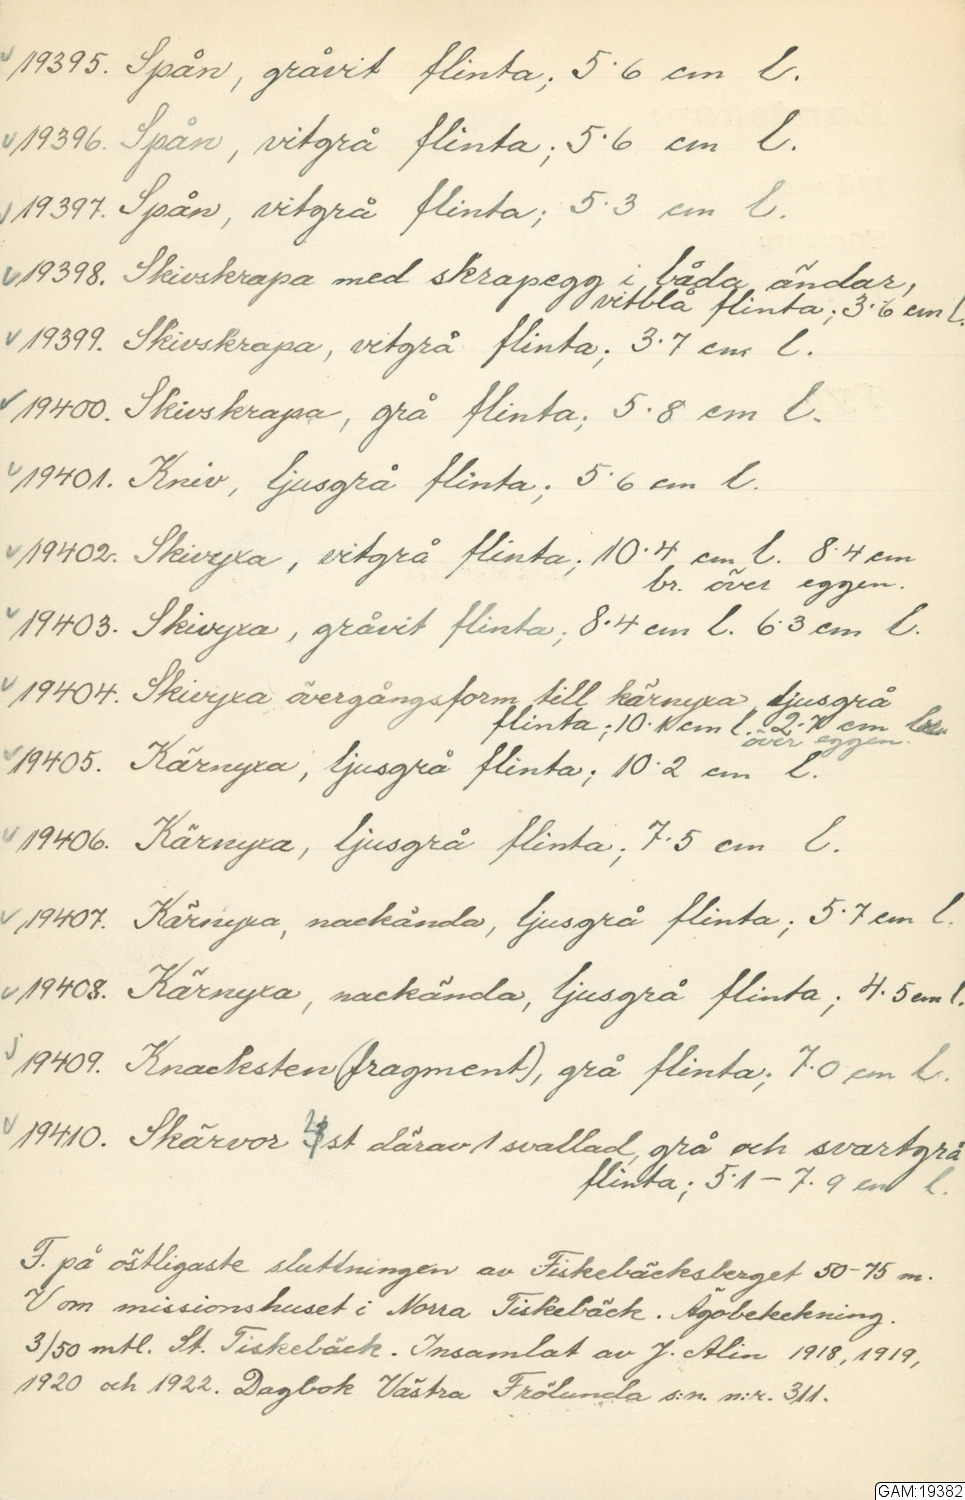 19395. Spån, gråvit flinta; 5.6 cm l.
19396. Spån, vitgrå flinta; 5.6 cm l.
19397. Spån, vitgrå flinta; 5.3 cm l.
19398. Skivskrapa med skrapegg i båda ändar,
vitblå flinta; 3.6 cm l.
19399. Skivskrapa, vitgrå flinta; 3.7 cm l.
19400. Skivskrapa, grå flinta; 5.8 cm l.
19401. Kniv, ljusgrå flinta; 5.6 cm l.
19402. Skivyxa, vitgrå flinta; 10.4 cm l. 8.4 cm
br. över eggen.
19403. Skivyxa, gråvit flinta; 8.4 cm l. 6.3 cm l.
19404. Skivyxa övergångsform till kärnyxa, ljusgrå
flinta; cm l. cm
över eggen.
19405. Kärnyxa, ljusgrå flinta; 10.2 cm l.
19406. Kärnyxa, ljusgrå flinta; 7.5 cm l.
19407. Kärnyxa, nackända, ljusgrå flinta; 5.7 cm l.
19408. Kärnyxa, nackända, ljusgrå flinta; 4.5 cm l.
19409. Knacksten (fragment), grå flinta; 7.0 cm l.
19410. Skärvor st därav 1 svallad, grå och svartgrå
flinta; 5.1 – 7.9 cm l.
F. på östligaste sluttningen av Fiskebäcksberget 50–75 m.
V om missionshuset i Norra Fiskebäck. Ägobeteckning.
3/50 mtl. St. Fiskebäck. Insamlat av J. Alin 1918, 1919,
1920 och 1922. Dagbok Västra Frölunda s:n. n:r. 311.
GAM:19382